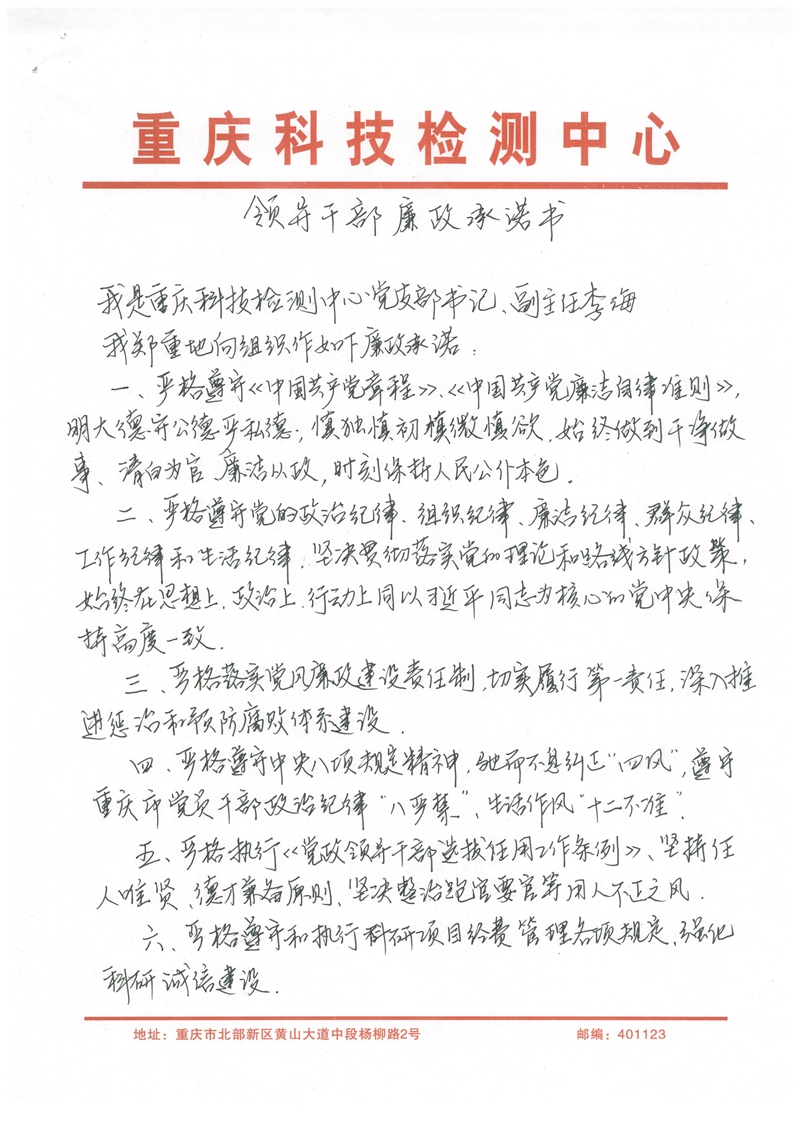 重庆科技检测中心
领导干部廉政承诺书
我是重庆科技检测中心党支部书记、副主任李海
我郑重地向组织作如下廉政承诺：
一、严格遵守《中国共产党章程》、《中国共产党廉洁自律准则》，
明大德守公德严私德；慎独慎初慎微慎欲，始终做到干净做
事、清白为官、廉洁从政，时刻保持人民公仆本色．
二、严格遵守党的政治纪律、组织纪律、廉洁纪律、群众纪律、
工作纪律和生活纪律，坚决贯彻落实党的理论和路线方针政策，
始终在思想上．政治上．行动上同以习近平同志为核心的党中央保
持高度一致．
三、严格落实党风廉政建设责任制，切实履行第一责任，深入推
进惩治和预防腐败体系建设．
四、严格遵守中央八项规定精神，驰而不息纠正“四风”，遵守
重庆市党员干部政治纪律“八严禁”、生活作风“十二不准”．
五、严格执行《党政领导干部选拔任用工作条例》、坚持任
人唯贤、德才兼备原则、坚决整治跑官要官等用人不正之风．
六、严格遵守和执行科研项目经费管理各项规定，强化
科研诚信建设．
地址：重庆市北部新区黄山大道中段杨柳路2号 邮编：401123